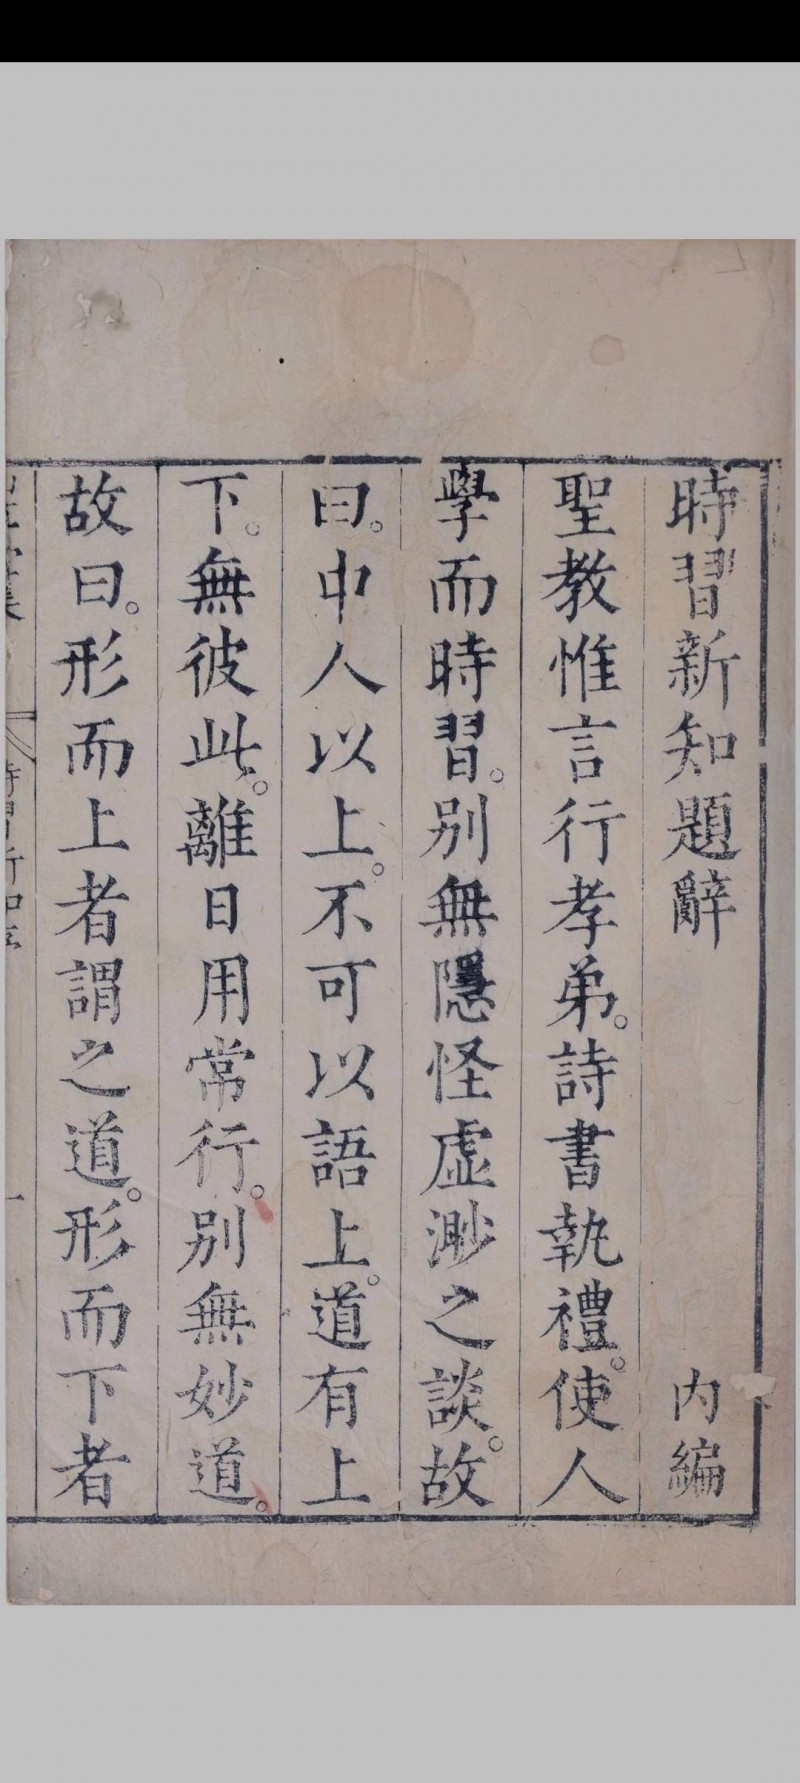 時習新知題辭　內編
聖教惟言行孝弟。詩書執禮。使人
學而時習。別無隱怪虛渺之談。故
曰。中人以上。不可以語上。道有上
下。無彼此。離日用常行。別無妙道。
故曰。形而上者謂之道。形而下者